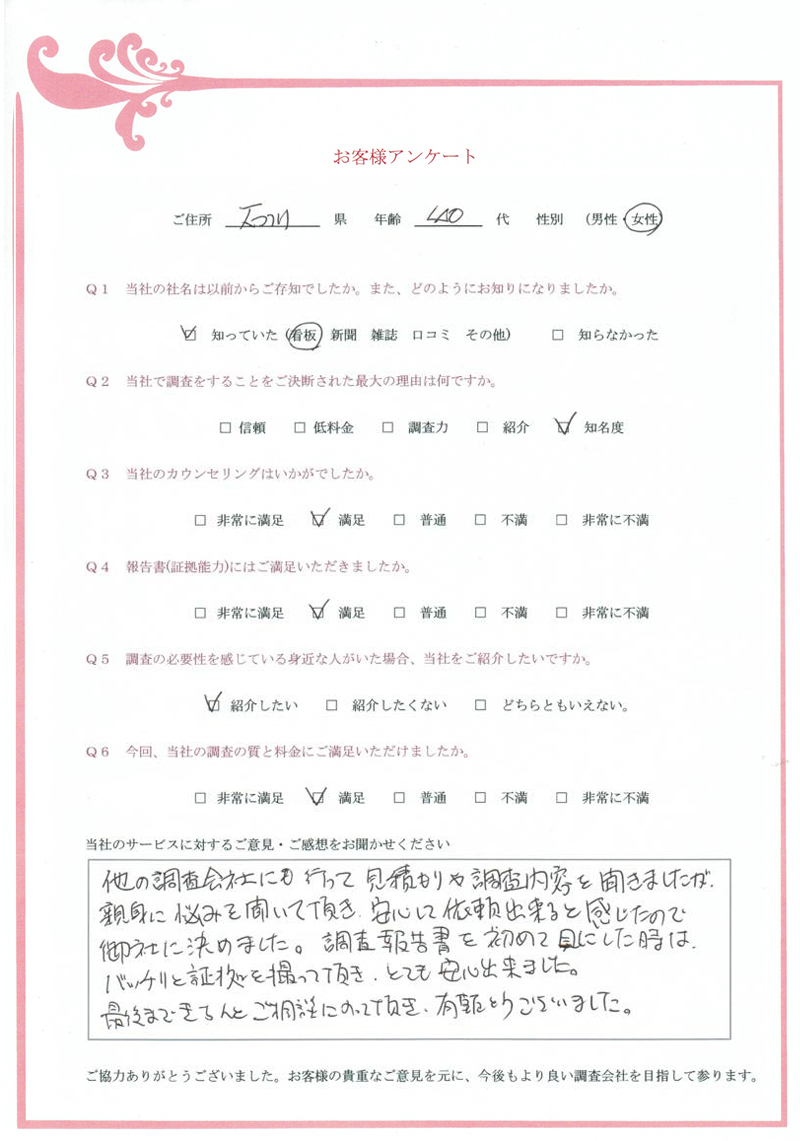 お客様アンケート
ご住所 石川 県 年齢 40 代 性別 (男性・女性)
Q1 当社の社名は以前からご存知でしたか。また、どのようにお知りになりましたか。
☑ 知っていた (看板 新聞 雑誌 口コミ その他) □ 知らなかった
Q2 当社で調査をすることをご決断された最大の理由は何ですか。
□ 信頼 □ 低料金 □ 調査力 □ 紹介 ☑ 知名度
Q3 当社のカウンセリングはいかがでしたか。
□ 非常に満足 ☑ 満足 □ 普通 □ 不満 □ 非常に不満
Q4 報告書(証拠能力)にはご満足いただきましたか。
□ 非常に満足 ☑ 満足 □ 普通 □ 不満 □ 非常に不満
Q5 調査の必要性を感じている身近な人がいた場合、当社をご紹介したいですか。
☑ 紹介したい □ 紹介したくない □ どちらともいえない。
Q6 今回、当社の調査の質と料金にご満足いただけましたか。
□ 非常に満足 ☑ 満足 □ 普通 □ 不満 □ 非常に不満
当社のサービスに対するご意見・ご感想をお聞かせください
他の調査会社にも行って見積もりや調査内容を聞きましたが、
親身に悩みを聞いて頂き、安心して依頼出来ると感じたので
御社に決めました。調査報告書を初めて目にした時は、
バッチリと証拠を撮って頂き、とても安心出来ました。
最後まできちんとご相談にのって頂き、有難とうございました。
ご協力ありがとうございました。お客様の貴重なご意見を元に、今後もより良い調査会社を目指して参ります。